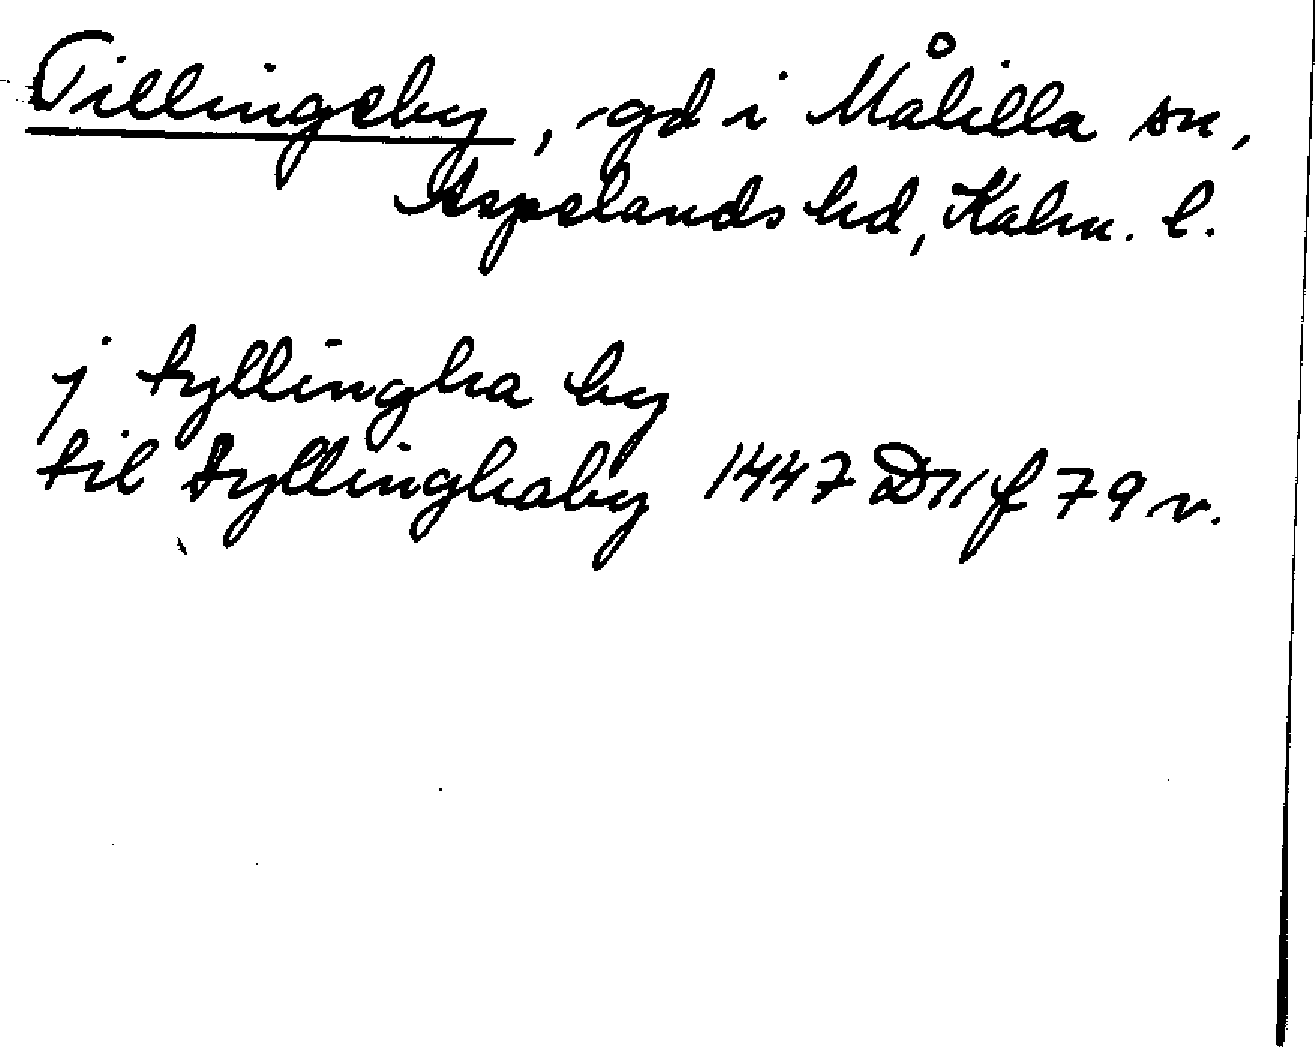 Tillingeby, gd i Målilla sn,
Aspelands hd, Kalm. l.
j tyllingha by
til tyllinghaby 1447 D11 f 79 v.